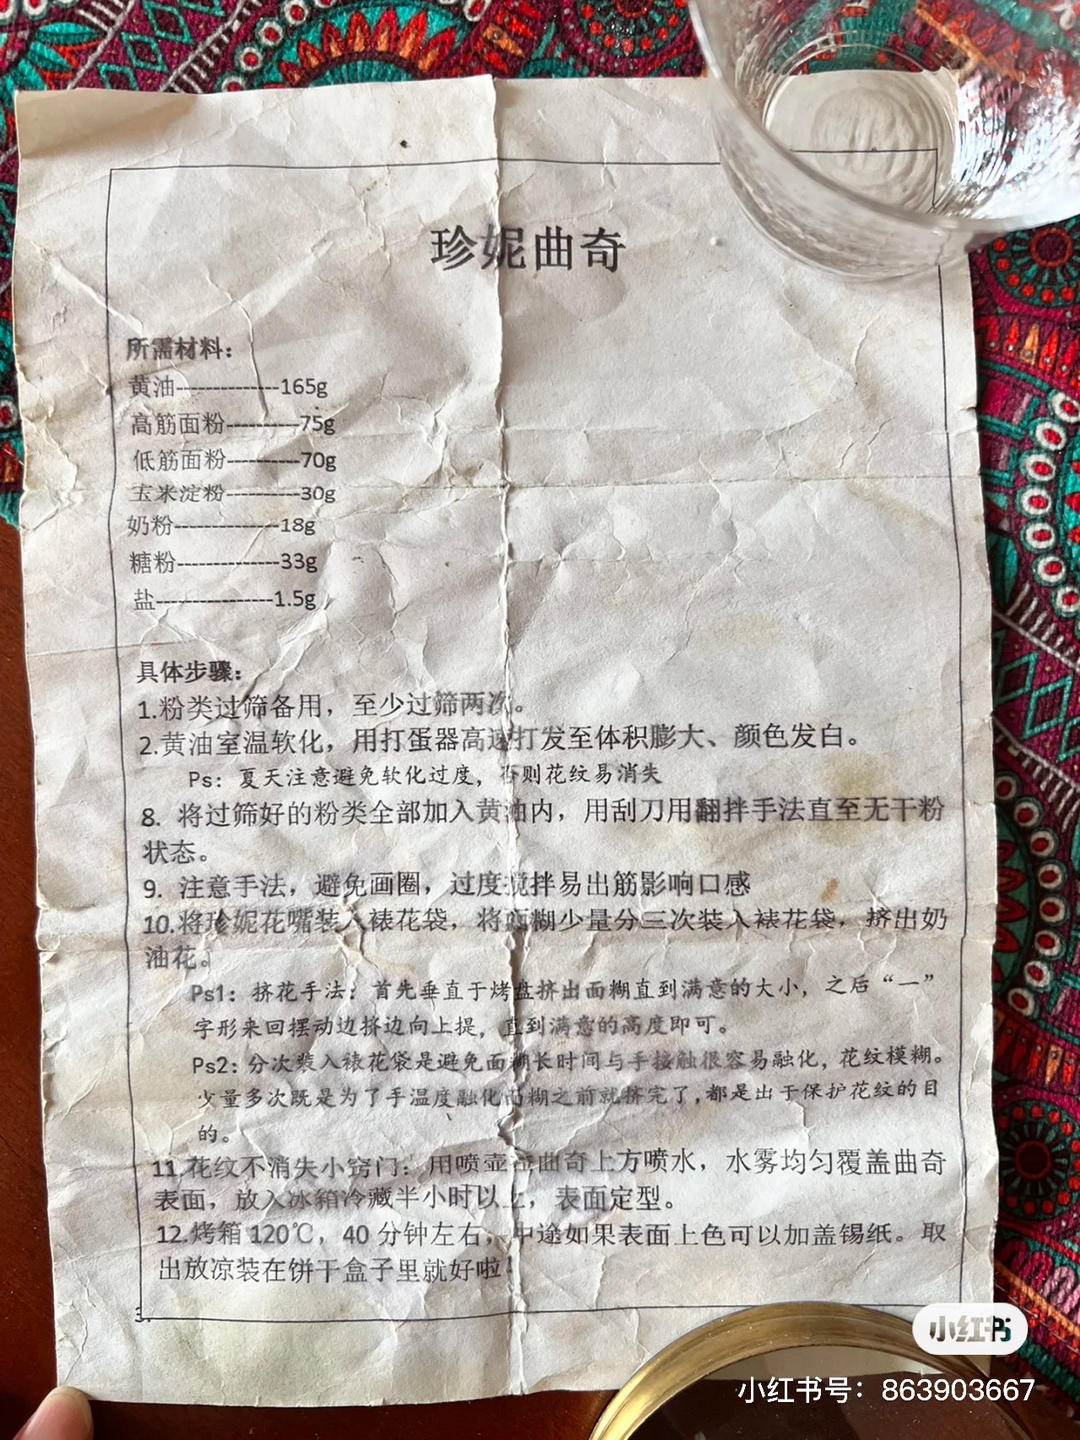 珍妮曲奇
所需材料：
黄油--------------165g
高筋面粉----------75g
低筋面粉----------70g
玉米淀粉----------30g
奶粉--------------18g
糖粉--------------33g
盐----------------1.5g
具体步骤：
1.粉类过筛备用，至少过筛两次。
2.黄油室温软化，用打蛋器高速打发至体积膨大、颜色发白。
Ps：夏天注意避免软化过度，否则花纹易消失
8. 将过筛好的粉类全部加入黄油内，用刮刀用翻拌手法直至无干粉
状态。
9. 注意手法，避免画圈，过度搅拌易出筋影响口感
10.将珍妮花嘴装入裱花袋，将面糊少量分三次装入裱花袋，挤出奶
油花。
Ps1：挤花手法：首先垂直于烤盘挤出面糊直到满意的大小，之后“一”
字形来回摆动边挤边向上提，直到满意的高度即可。
Ps2：分次装入裱花袋是避免面糊长时间与手接触很容易融化，花纹模糊。
少量多次既是为了手温度融化面糊之前就挤完了，都是出于保护花纹的目
的。
11.花纹不消失小窍门：用喷壶在曲奇上方喷水，水雾均匀覆盖曲奇
表面，放入冰箱冷藏半小时以上，表面定型。
12.烤箱 120℃，40 分钟左右，中途如果表面上色可以加盖锡纸。取
出放凉装在饼干盒子里就好啦！
3.
小红书
小红书号：863903667